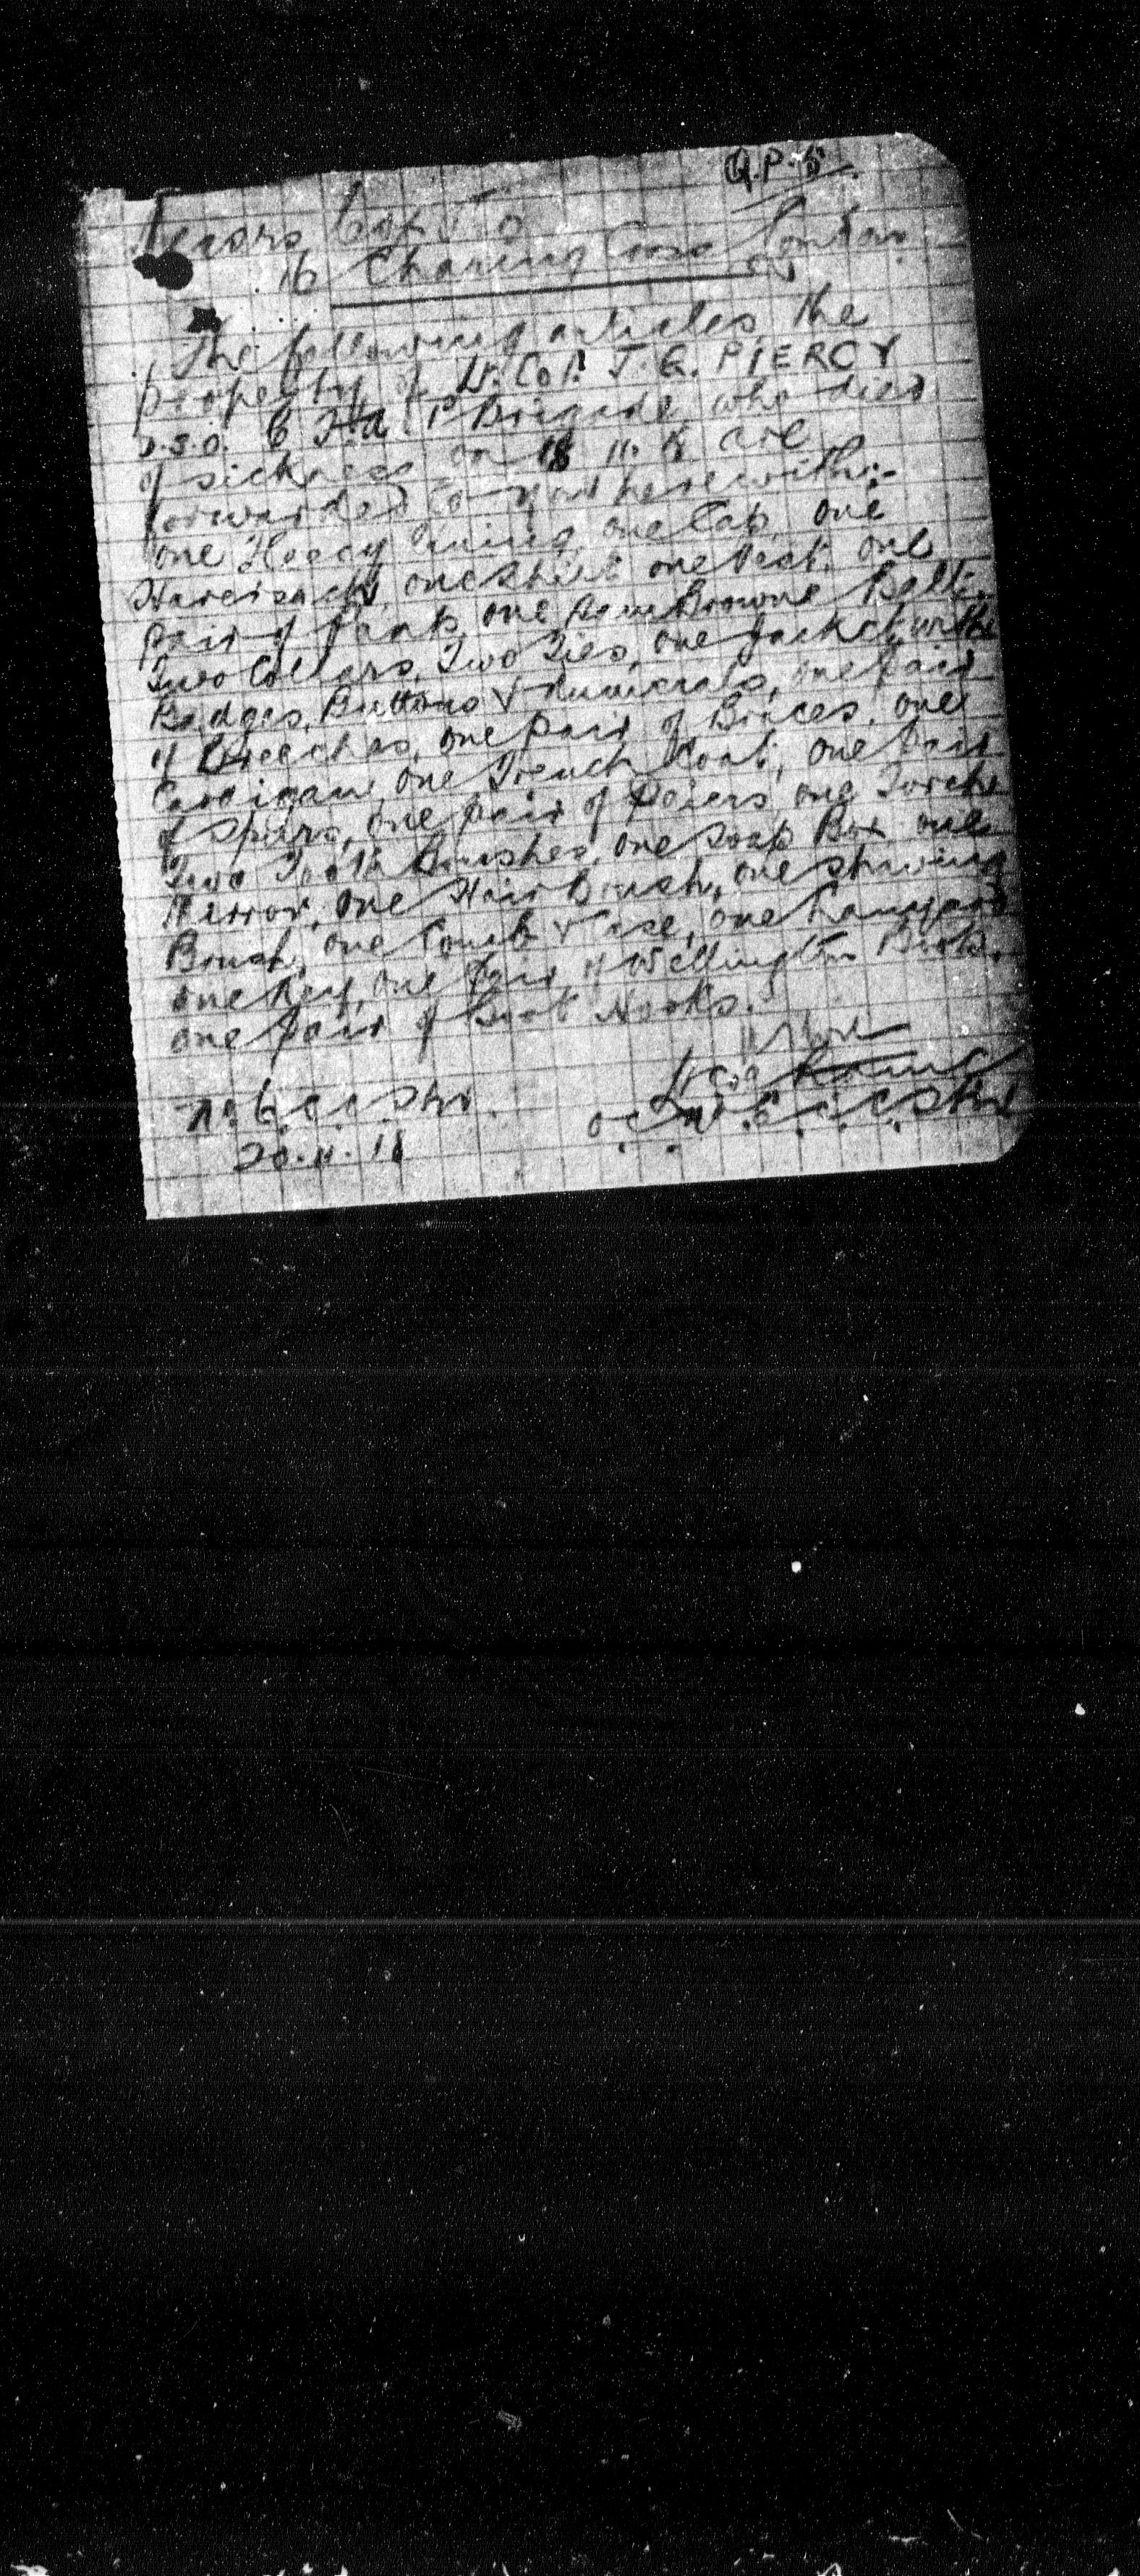 Q.P.5.
Messrs Cox & Co
16 Charing Cross London
The following articles the
property of Lt. Col. J. G. PIERCY
D.S.O. Brigade who died
of sickness on 18 11. are
forwarded to you herewith:-
one Heavy Lining, one Cap, one
Haversack, one shirt one Vest. one
pair of Pants one Sam Browne Belt.
Two Collars, Two Ties, one Jacket with
Badges, Buttons & Numerals, one pair
of Breeches, one pair of Braces, one
Cardigan, one Trench Koat, one pair
of Spurs, one pair of one Torch
Two Tooth Brushes, one Soap Box one
Mirror, one Hair Brush, one shaving
Brush, one Comb & Case, one Lanyard
one Key, one Pair of Wellington Boots.
one pair of Boot Hooks.
No. 6 C.C.Stn.
20.11.18
O.C. No. 6 C.C.Stn